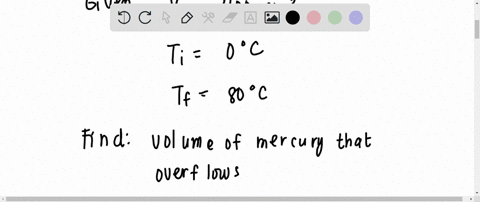 Given
Ti = 0°C
Tf = 80°C
Find: volume of mercury that
overflows